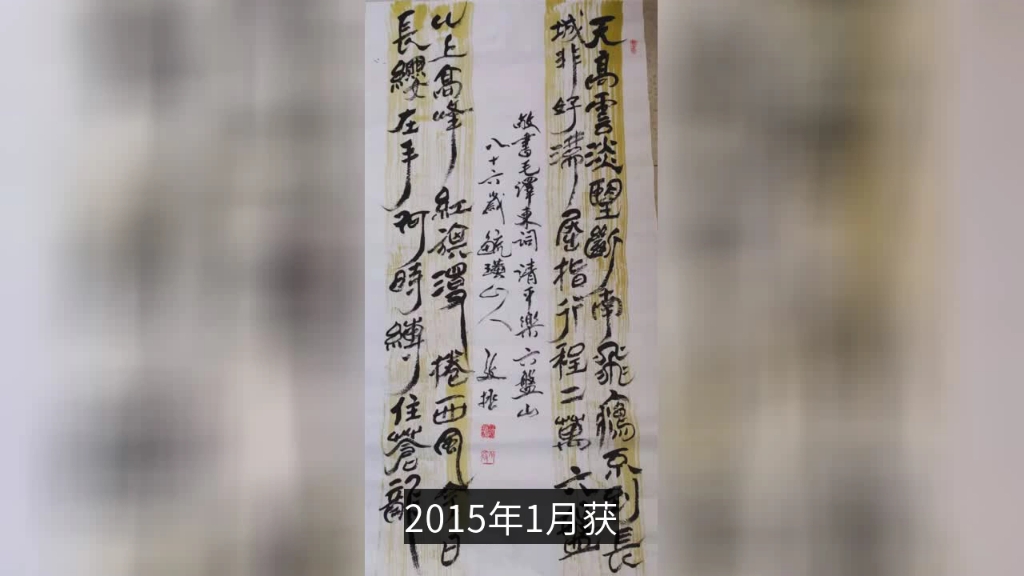 天高雲淡望斷南飛鴈不到長
城非好漢屈指行程二萬六盤
山上高峰紅旗漫捲西風今日
長纓在手何時縛住蒼龍
敬書毛澤東詞清平樂六盤山
八十六歲毓瑛山人
2015年1月获